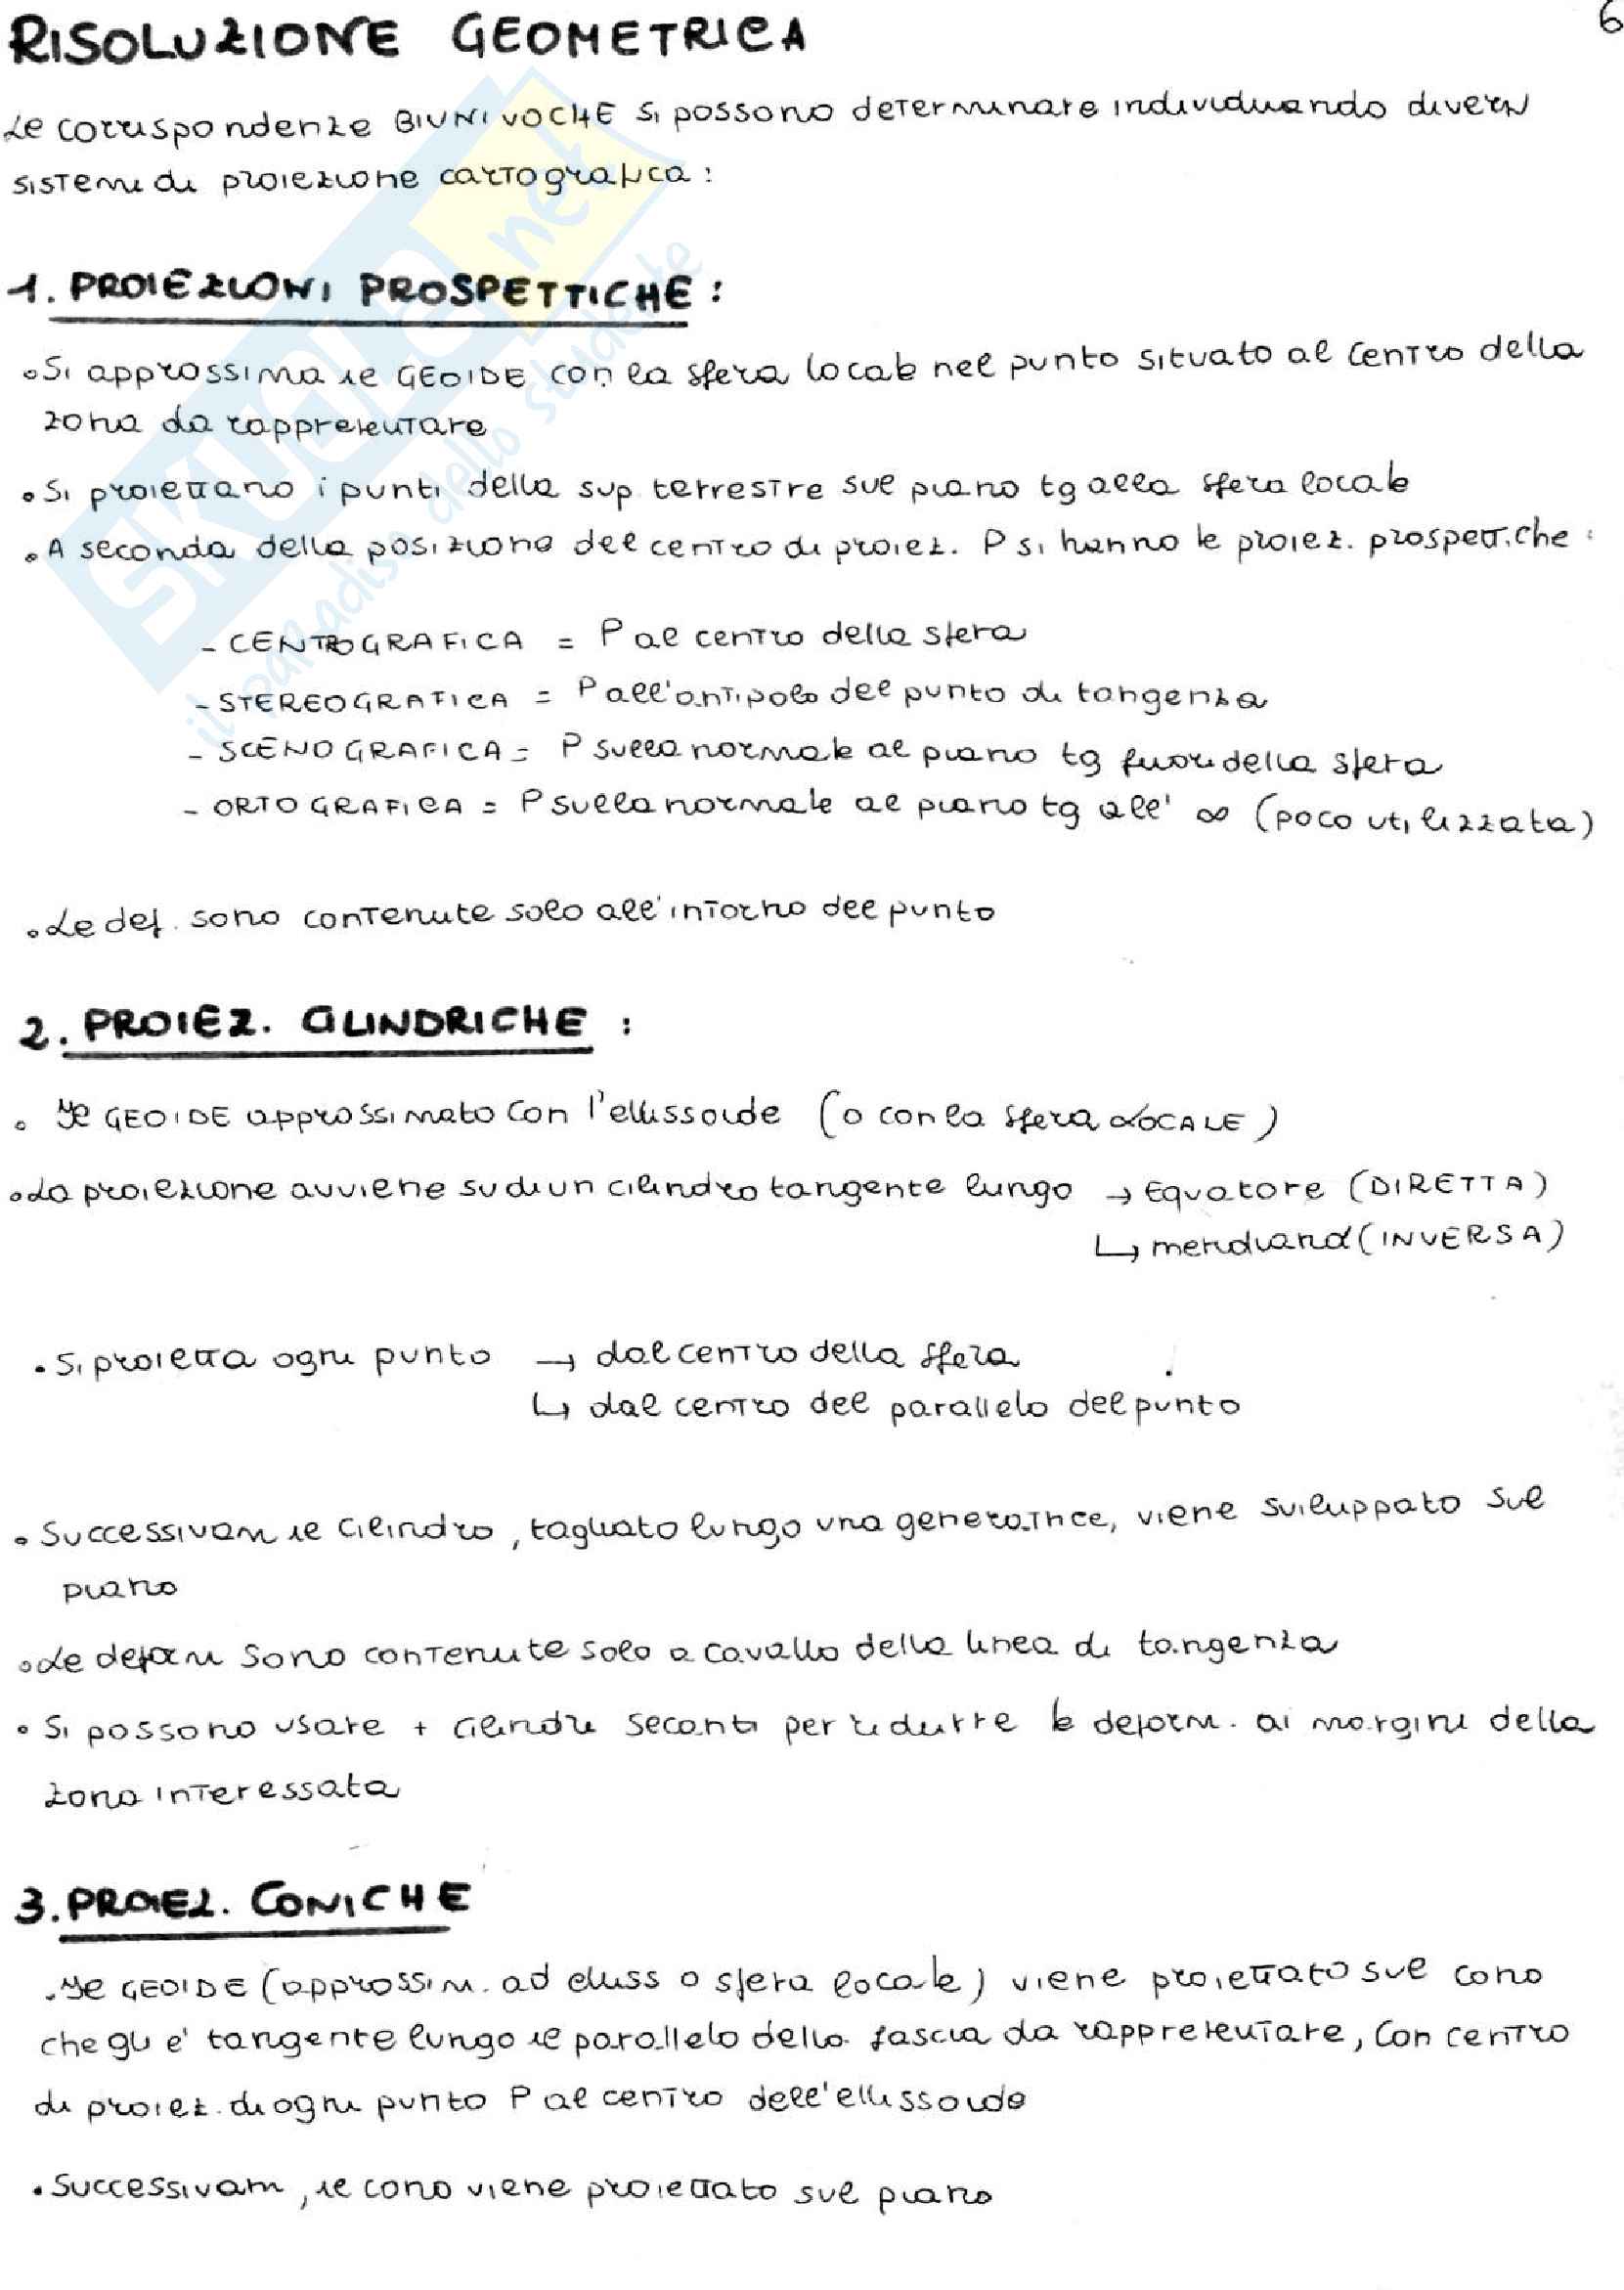 6
RISOLUZIONE GEOMETRICA
Le corrispondenze BIUNIVOCHE si possono determinare individuando diversi
sistemi di proiezione cartografica:
1. PROIEZIONI PROSPETTICHE:
• Si approssima il GEOIDE con la sfera locale nel punto situato al centro della
zona da rappresentare
• Si proiettano i punti della sup. terrestre sul piano tg alla sfera locale
• A seconda della posizione del centro di proiez. P si hanno le proiez. prospettiche:
- CENTROGRAFICA = P al centro della sfera
- STEREOGRAFICA = P all'antipolo del punto di tangenza
- SCENOGRAFICA = P sulla normale al piano tg fuori della sfera
- ORTOGRAFICA = P sulla normale al piano tg all' ∞ (poco utilizzata)
• Le def. sono contenute solo all'intorno del punto
2. PROIEZ. CILINDRICHE:
• Il GEOIDE approssimato con l'ellissoide (o con la sfera LOCALE)
• La proiezione avviene su di un cilindro tangente lungo → Equatore (DIRETTA)
↳ meridiano (INVERSA)
• Si proietta ogni punto → dal centro della sfera
↳ dal centro del parallelo del punto
• Successivam il cilindro, tagliato lungo una generatrice, viene sviluppato sul
piano
• Le deform sono contenute solo a cavallo della linea di tangenza
• Si possono usare + cilindri secanti per ridurre le deform. ai margini della
zona interessata
3. PROIEZ. CONICHE
• Il GEOIDE (approssim. ad elliss o sfera locale) viene proiettato sul cono
che gli e' tangente lungo il parallelo della fascia da rappresentare, con centro
di proiez. di ogni punto P al centro dell'ellissoide
• Successivam, il cono viene proiettato sul piano
SKUOLA.net
il paradiso dello studente